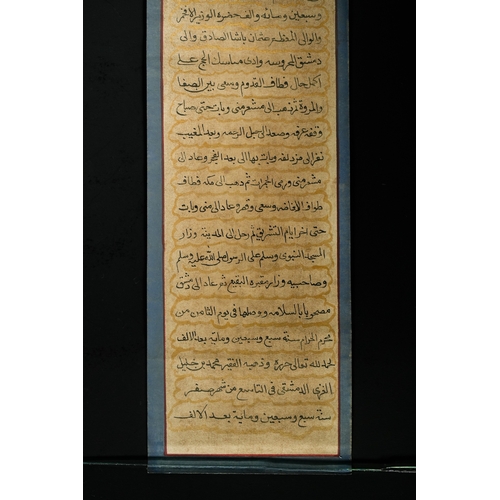 وسبعين ومائه والف حضرة الوزير الافخر
والوالى المعظم عثمان باشا الصادق والى
دمشق المحروسه وادى مناسك الحج على
اكمل حال فطاف القدوم وسعى بين الصفا
والمروة ثم ذهب الى مشعر منى وبات حتى صباح
وقفة عرفه وصعد الى جبل الرحمه وبعد المغيب
نفر الى مزدلفه وبات بها الى بعد الفجر وعاد الى
مشعر منى ورمى الجمرات ثم ذهب الى مكه فطاف
طواف الافاضه وسعى وقصر وعاد الى منى وبات
حتى اخر ايام التشريق ثم رحل الى المدينة وزار
المسجد النبوى وسلم على الرسول صلى الله عليه وسلم
وصاحبيه وزار مقبرة البقيع ثم عاد الى دمشق
مصحوبا بالسلامه ووصلها فى يوم الثامن من
محرم الحرام سنة سبع وسبعين ومايه بعد الالف
لحمد لله تعالى حرره وذهبه الفقير محمد بن خليل
الغزى الدمشقى فى التاسع من شهر صفر
سنة سبع وسبعين وماية بعد الالف